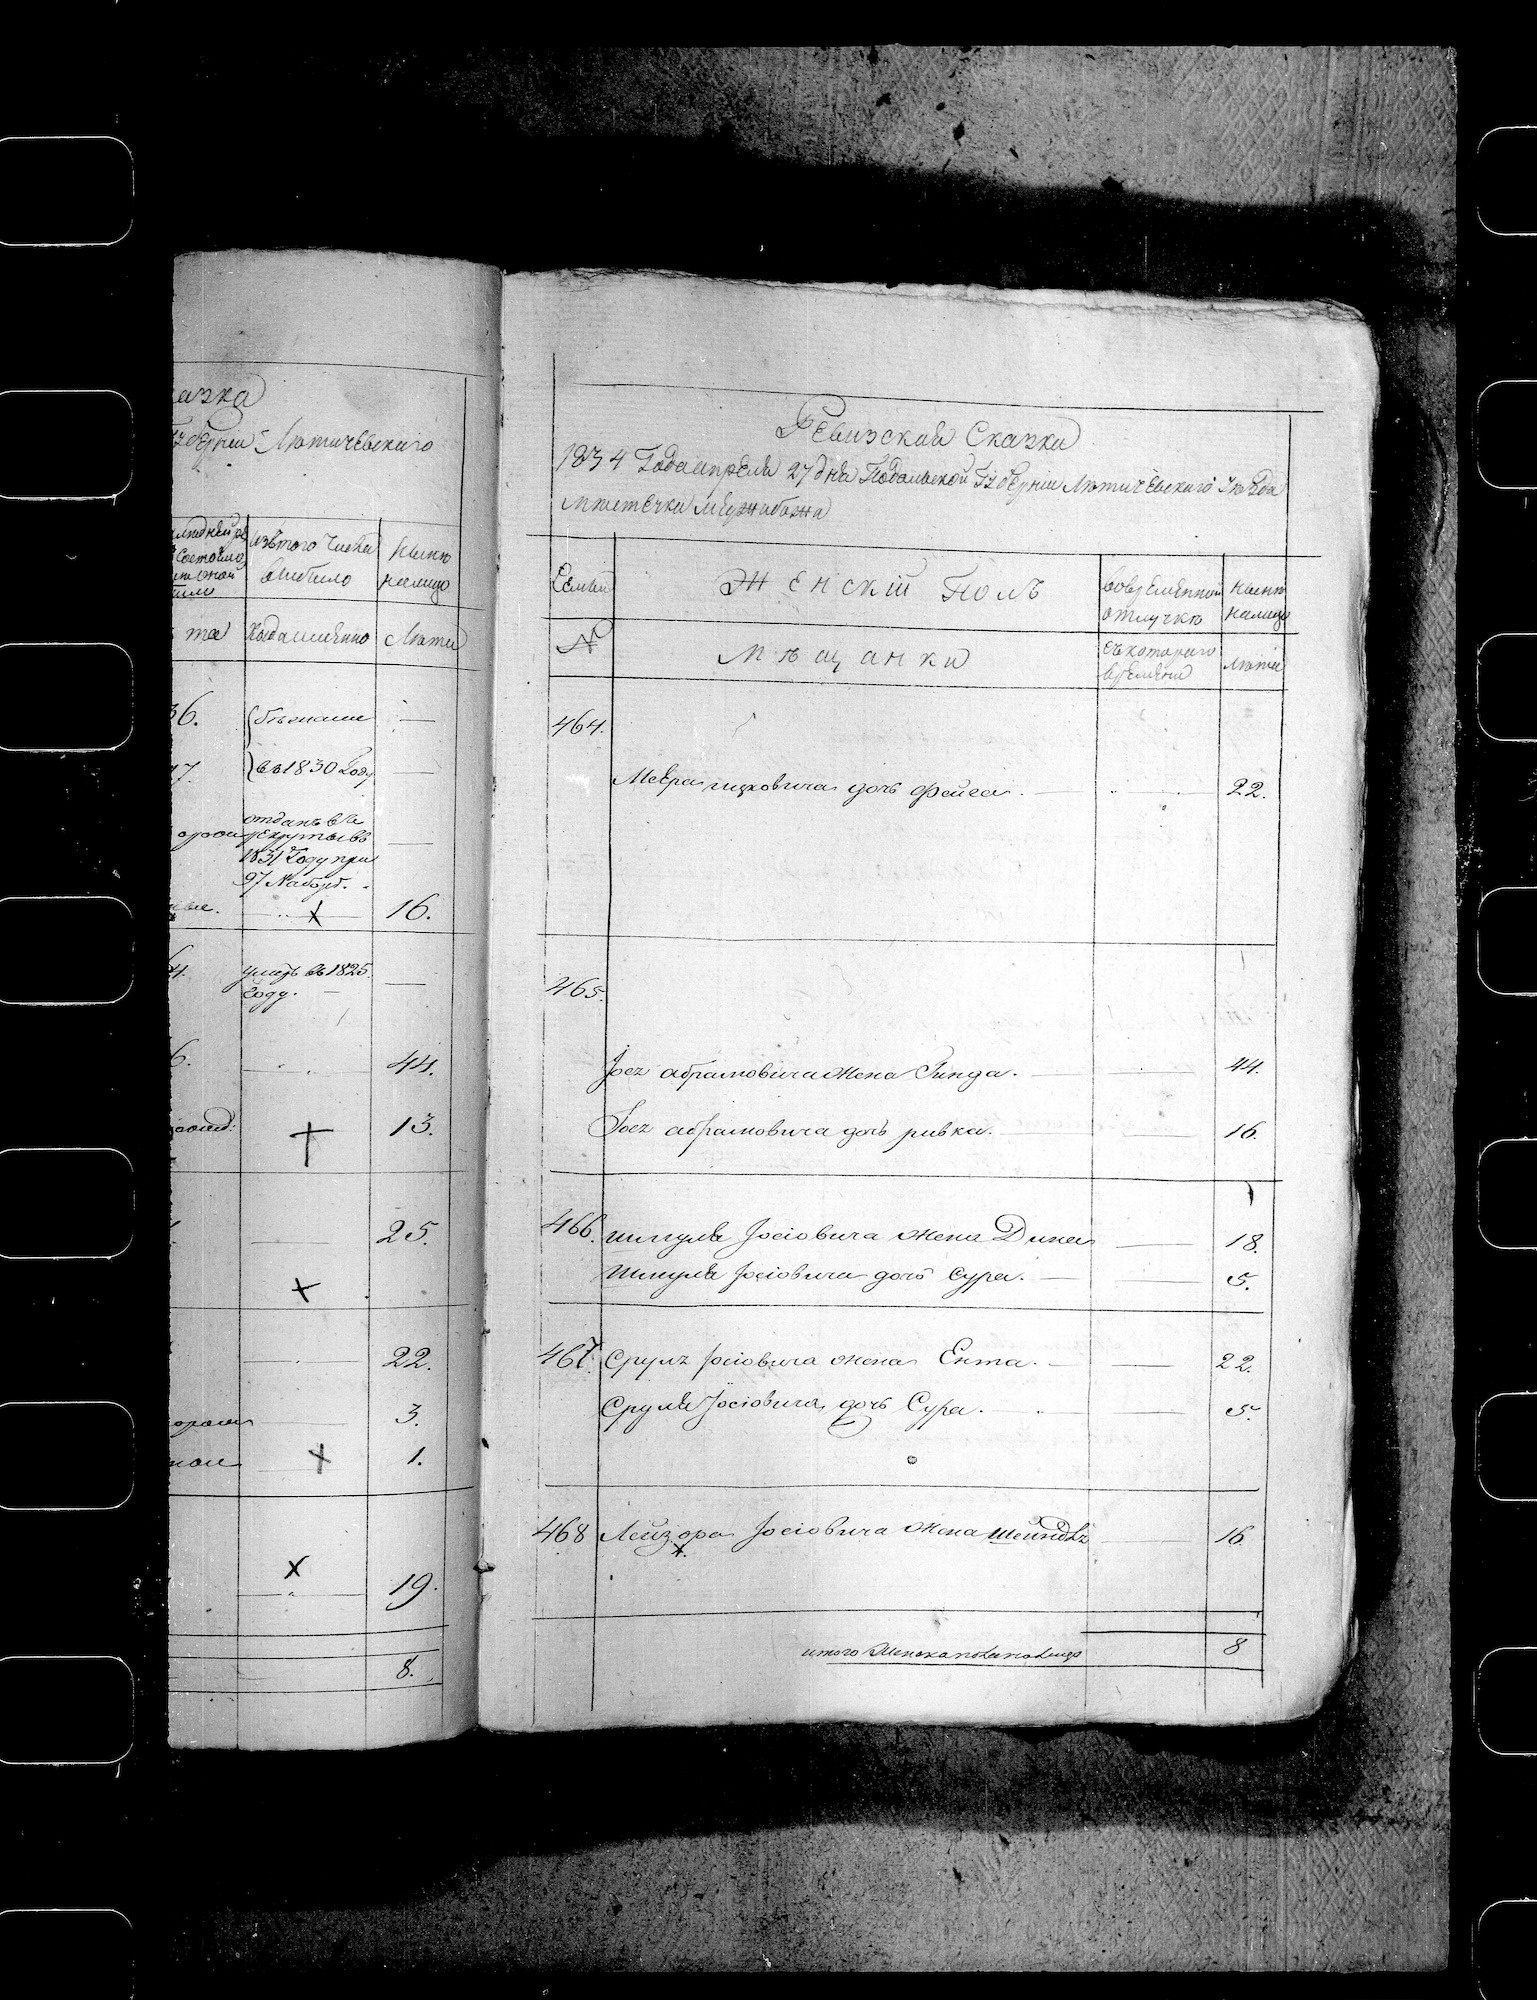 азка
Губерніи Летичевскаго
изътого числа
ныне
состояло
выбыло
налицо
та
Когда именно
Лета
36.
бежали
77.
въ 1830 Году
отданъ въ
рекруты въ
1831 Году при
97 Наборе.
16.
умеръ въ 1825
Году.
44.
13.
25.
22.
3.
1.
19.
8.
Ревизская Сказка
1834 Года апреля 27 дня Подольской Губерніи Летичевскаго Уезда
местечка Межибожа
Семьи
Женскій Полъ
вовременной
отлучке
ныне
налицо
№
Мещанки
съкотораго
времени
Лета
464.
Меера ицковича дочь Фейга. 22.
465.
Іосъ абрамовича жена Гинда. 44.
Іосъ абрамовича дочь ривка. 16.
466. шмуля Іосіовича жена Дина 18.
Шмуля Іосіовича дочь Сура. 5.
467. Срулъ Іосіовича жена Ента. 22.
Сруля Іосіовича дочь Сура. 5.
468 Лейзора Іосіовича жена шейндля 16
итого Женска пола налицо 8